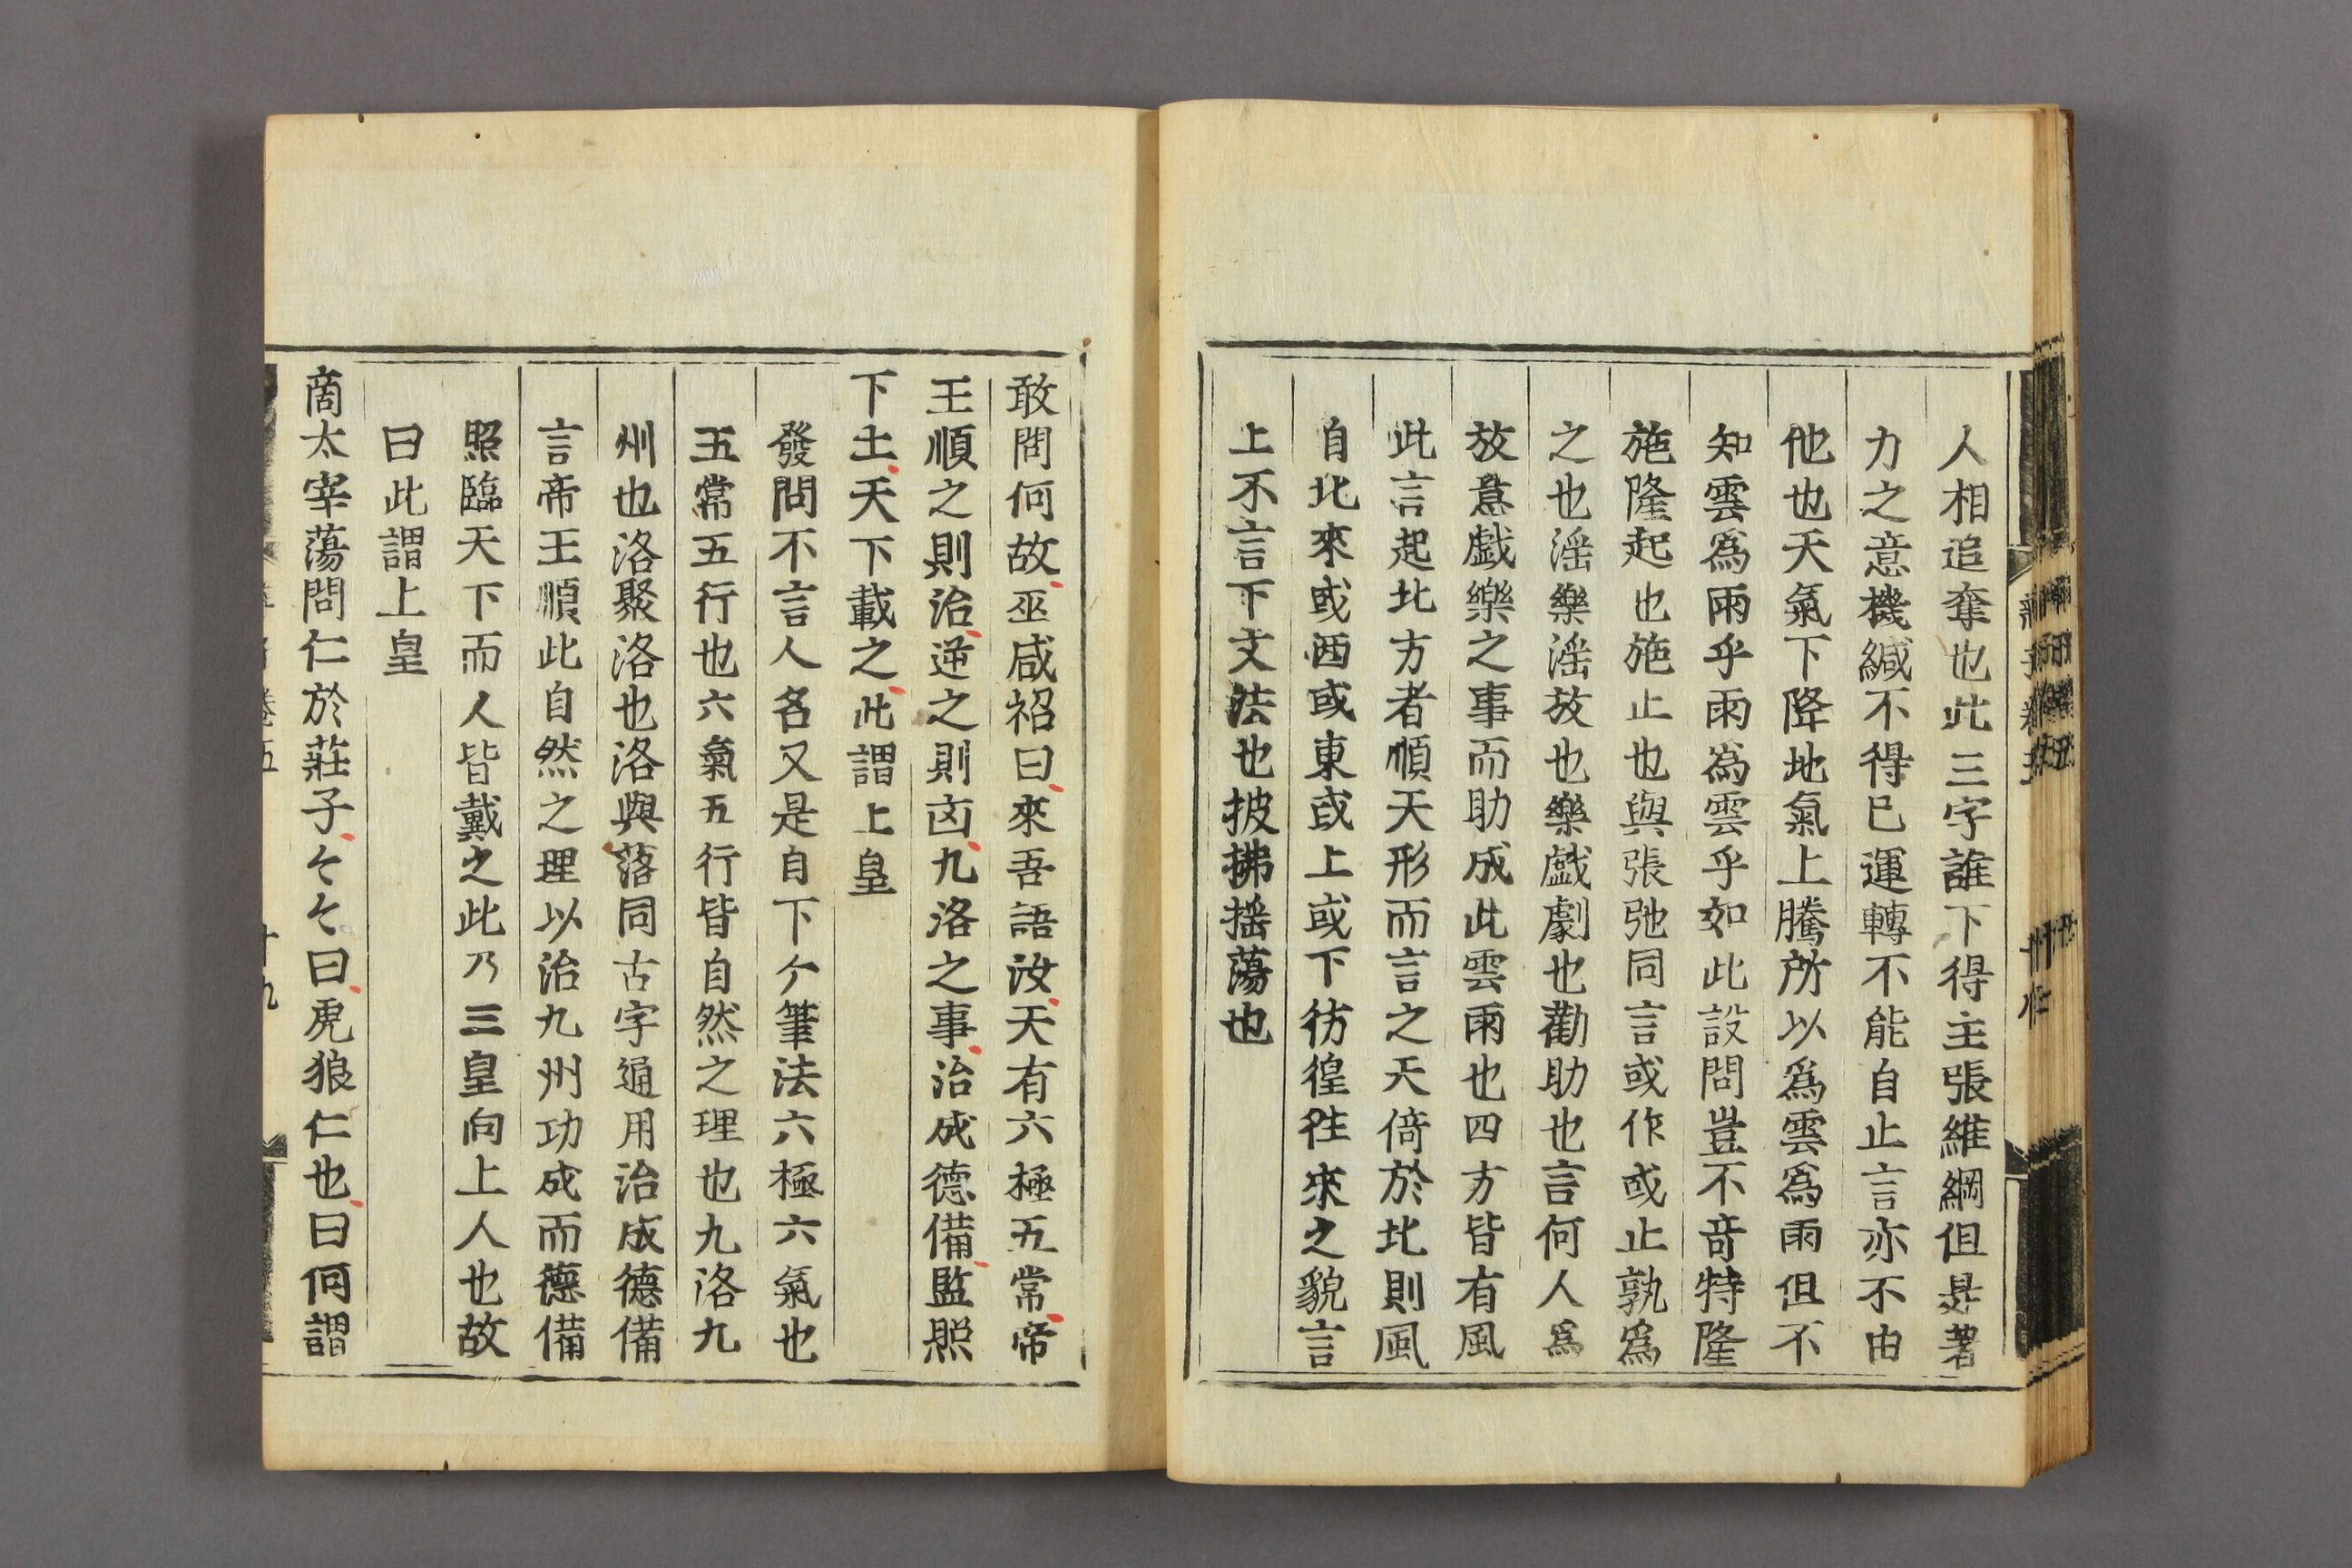 人相追奪也此三字誰下得主張維綱但是著
力之意機緘不得已運轉不能自止言亦不由
他也天氣下降地氣上騰所以爲雲爲雨但不
知雲爲雨乎雨爲雲乎如此設問豈不奇特隆
施隆起也施止也與張弛同言或作或止孰爲
之也滛樂滛放也樂戲劇也勸助也言何人爲
放意戲樂之事而助成此雲雨也四方皆有風
此言起北方者順天形而言之天倚於北則風
自北來或西或東或上或下彷徨往來之貌言
上不言下文法也披拂揺蕩也
敢問何故巫咸祒曰來吾語汝天有六極五常帝
王順之則治逆之則凶九洛之事治成德備監照
下土天下載之此謂上皇
發問不言人名又是自下ケ筆法六極六氣也
五常五行也六氣五行皆自然之理也九洛九
州也洛聚洛也洛與落同古字通用治成德備
言帝王順此自然之理以治九州功成而德備
照臨天下而人皆戴之此乃三皇向上人也故
曰此謂上皇
啇太宰蕩問仁於莊子々々曰虎狼仁也曰何謂
卷五
十九